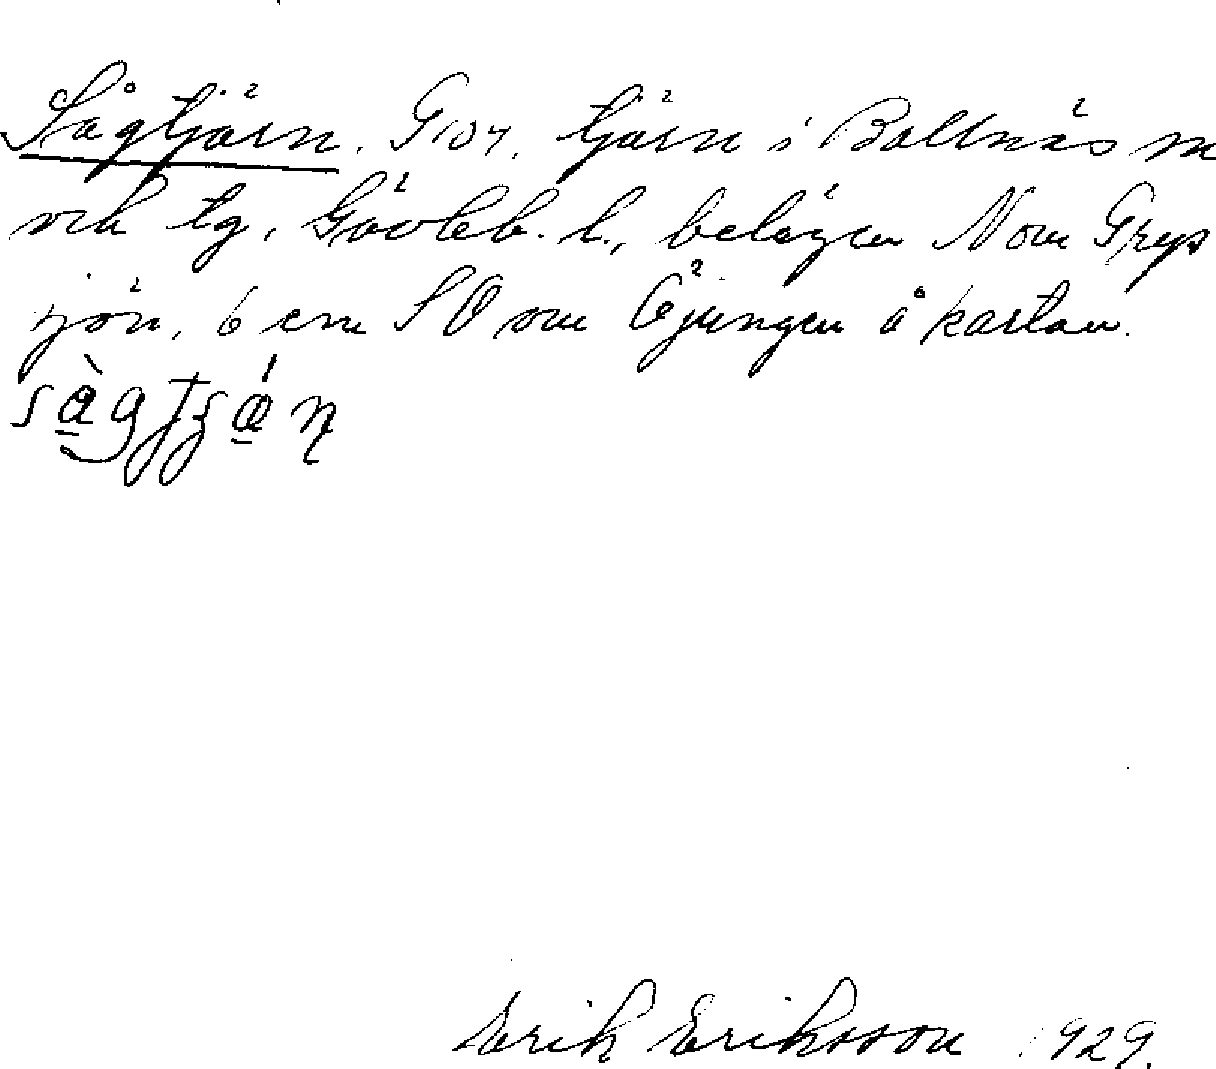 Sågtjärn. G107. tjärn i Bollnäs sn
och tg, Gävleb. l., belägen N om Grys
sjön, 6 cm SO om Öjungen å kartan.
Erik Eriksson 1929.